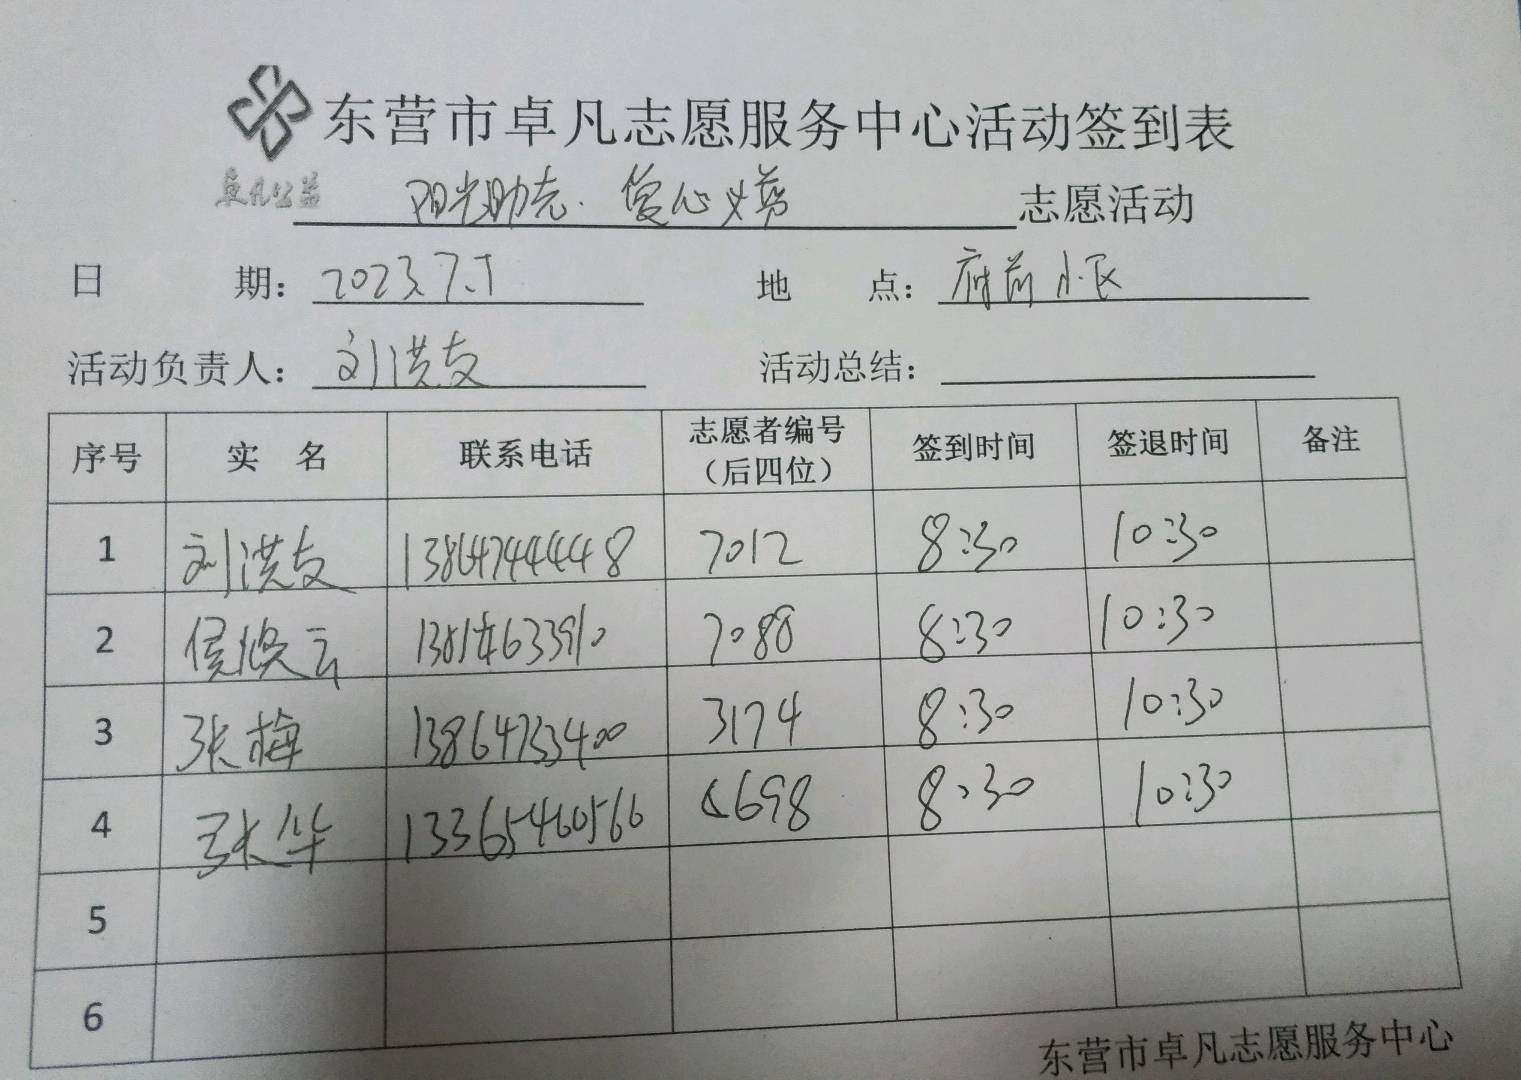 东营市卓凡志愿服务中心活动签到表
卓凡公益
阳光助志·爱心义剪 志愿活动
日期: 2023.7.5 地点: 府前小区
活动负责人: 刘洪友 活动总结:
序号 实名 联系电话 志愿者编号（后四位） 签到时间 签退时间 备注
1 刘洪友 13864744448 7012 8:30 10:30
2 侯焕云 7088 8:30 10:30
3 张梅 13864733400 3174 8:30 10:30
4 张华 13365460566 6698 8:30 10:30
5
6
东营市卓凡志愿服务中心